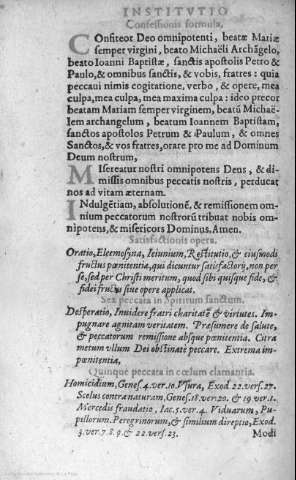 INSTITVTIO
Confessionis formula.
COnfiteor Deo omnipotenti, beatæ Mariæ
semper virgini, beato Michaëli Archāgelo,
beato Ioanni Baptistæ, sanctis apostolis Petro &
Paulo, & omnibus sanctis, & vobis, fratres : quia
peccaui nimis cogitatione, verbo, & opere, mea
culpa, mea culpa, mea maxima culpa : ideo precor
beatam Mariam semper virginem, beatū Michaë-
lem archangelum, beatum Ioannem Baptistam,
sanctos apostolos Petrum & Paulum, & omnes
Sanctos, & vos fratres, orare pro me ad Dominum
Deum nostrum,
MIsereatur nostri omnipotens Deus, & di-
missis omnibus peccatis nostris, perducat
nos ad vitam æternam.
INdulgētiam, absolutionē, & remissionem om-
nium peccatorum nostrorū tribuat nobis om-
nipotens, & misericors Dominus. Amen.
Satisfactionis opera.
Oratio, Eleemosyna, Ieiunium, Restitutio, & eiusmodi
fructus pœnitentiæ, qui dicuntur satisfactorij, non per
se, sed per Christi meritum, quod sibi quisque fide, &
fidei fructu siue opere applicat.
Sex peccata in Spiritum sanctum.
Desperatio, Inuidere fratri charitatē & virtutes. Im-
pugnare agnitam veritatem. Præsumere de salute,
& peccatorum remissione absque pœnitentia. Citra
metum vllum Dei obstinatè peccare. Extrema im-
pœnitentia,
Quinque peccata in cœlum clamantia.
Homicidium, Genes.4.ver.10. Vsura, Exod 22.vers.27.
Scelus contra naturam, Genes.18.vers.20. & 19 ver 1.
Mercedis fraudatio, Iac.5.ver.4. Viduarum, Pu-
pillorum, Peregrinorum, & similium direptio, Exod.
3.ver.7.8.9. & 22.vers.23.
Modi